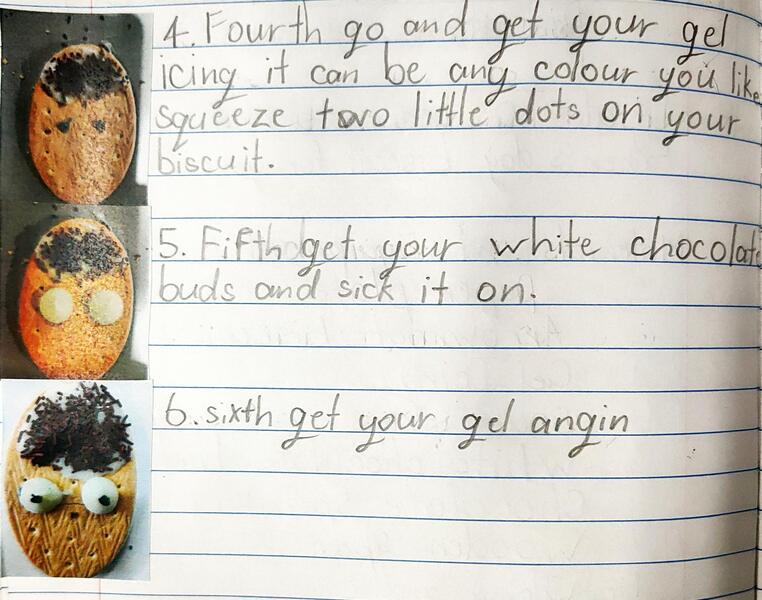 4. Fourth go and get your gel
icing it can be any colour you like
squeeze two little dots on your
biscuit.
5. Fifth get your white chocolate
buds and sick it on.
6. sixth get your gel angin